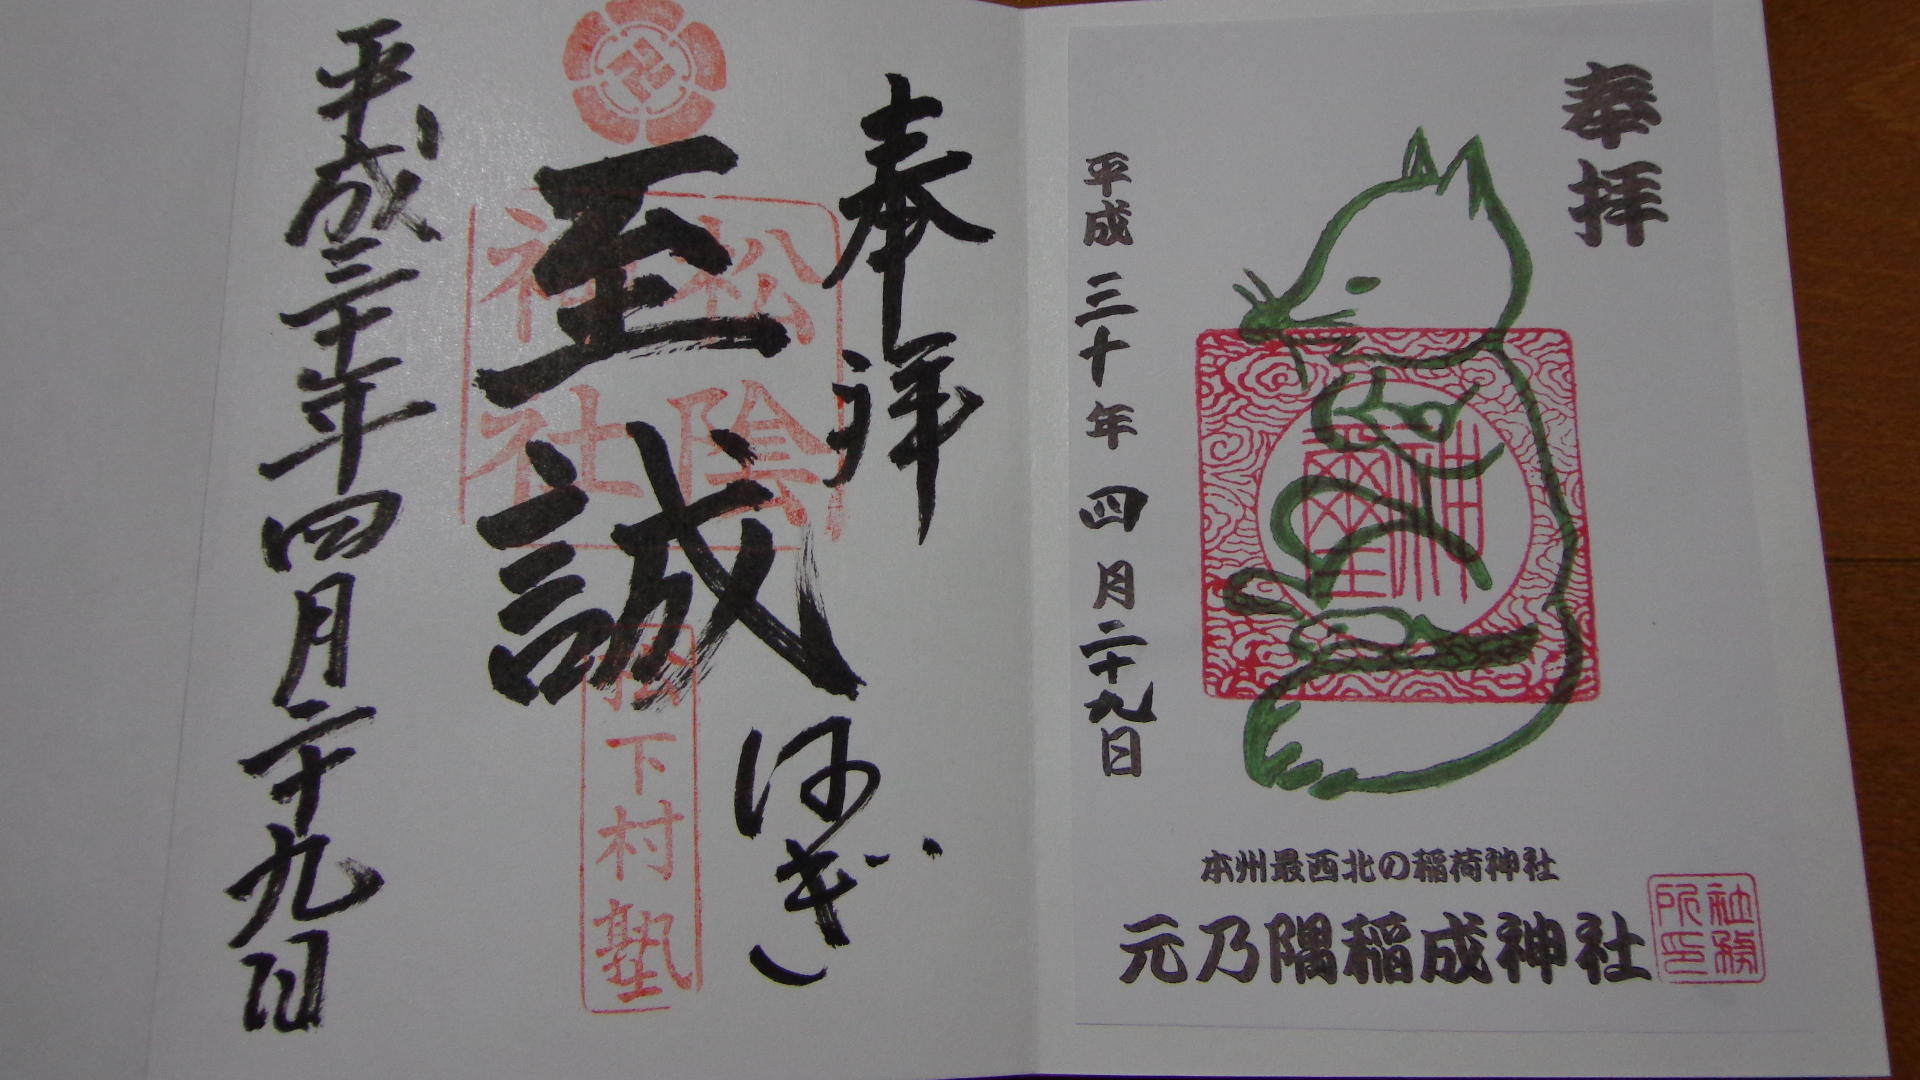 奉拝
平成三十年四月二十九日
神璽
本州最西北の稲荷神社
元乃隅稲成神社
社務所印
奉拝
至誠
はぎ
松陰神社
松下村塾
平成三十年四月二十九日